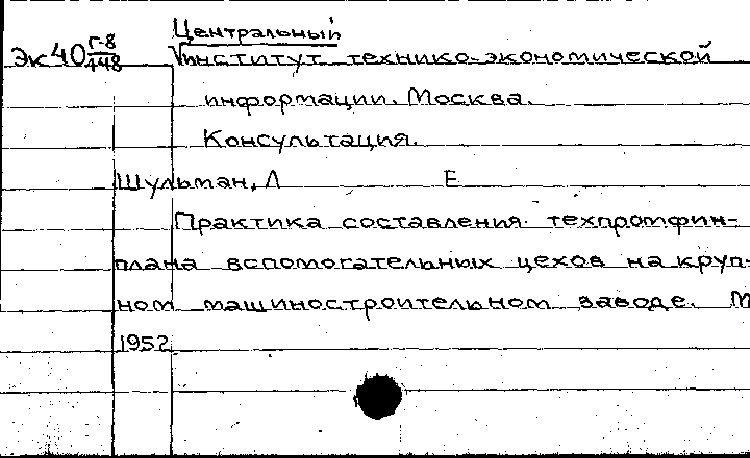 Центральный
Эк40 Г-8/148 Институт технико-экономической
информации. Москва.
Консультация.
Шульман, Л Е
Практика составления техпромфин-
плана вспомогательных цехов на круп-
ном машиностроительном заводе. М
1952